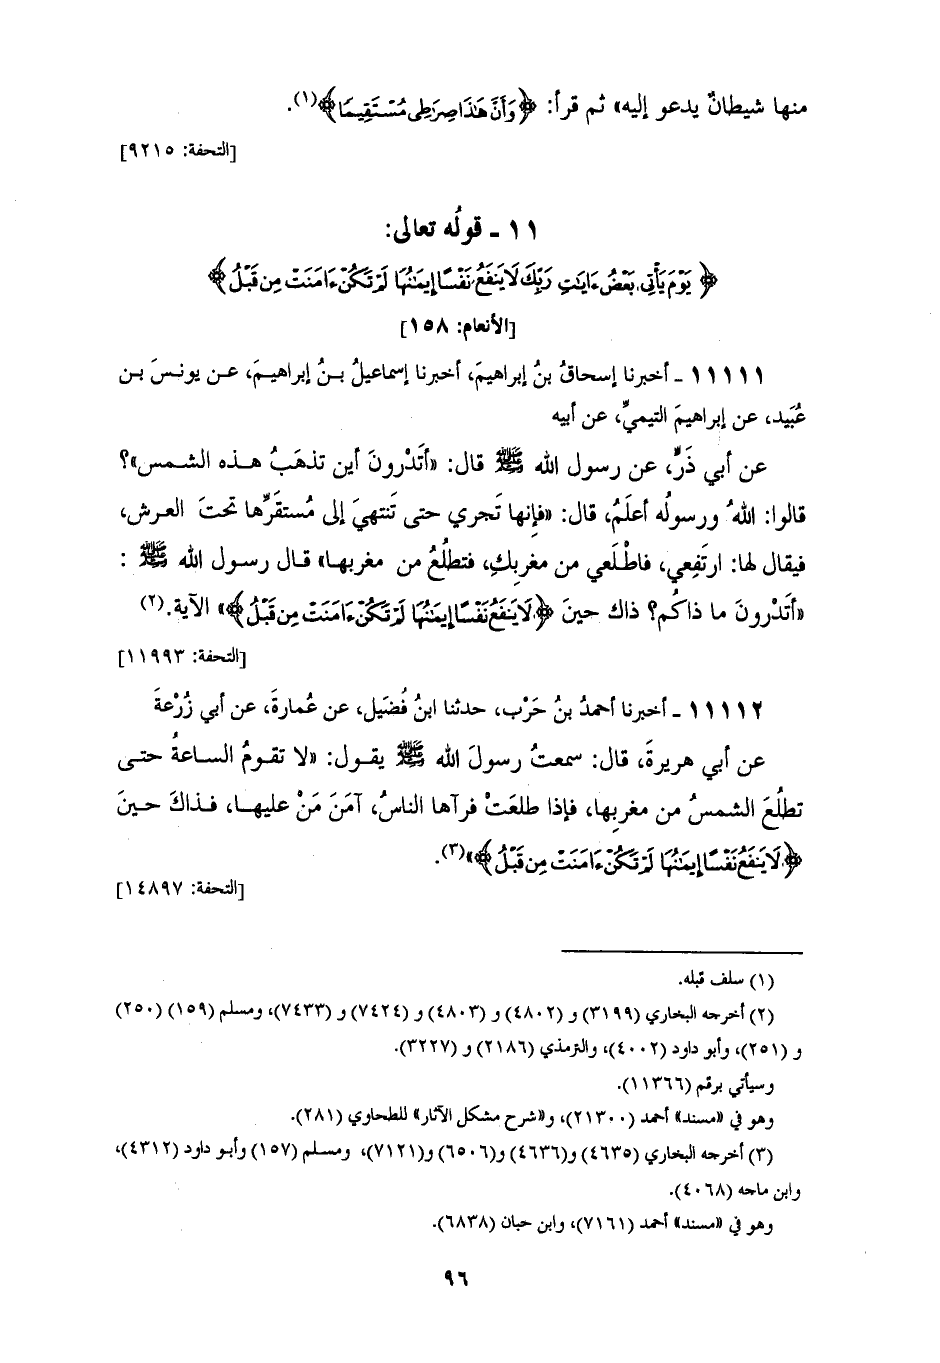 منها شيطانٌ يدعو إليه» ثم قرأ: ﴿وَأَنَّ هَٰذَا صِرَٰطِى مُسْتَقِيمًا﴾(١).
[التحفة: ٩٢١٥]
١١ ـ قولُه تعالى:
﴿يَوْمَ يَأْتِى بَعْضُ ءَايَٰتِ رَبِّكَ لَا يَنفَعُ نَفْسًا إِيمَٰنُهَا لَمْ تَكُنْ ءَامَنَتْ مِن قَبْلُ﴾
[الأنعام: ١٥٨]
١١١١١ ـ أخبرنا إسحاقُ بنُ إبراهيمَ، أخبرنا إسماعيلُ بـنُ إبراهيـمَ، عـن يونـسَ بـن
عُبَيد، عن إبراهيمَ التيميِّ، عن أبيه
عن أبي ذَرٍّ، عن رسول الله ﷺ قال: «أَتَدْرونَ أين تذهَبُ هـذه الشـمس»؟
قالوا: اللهُ ورسولُه أعلَمُ، قال: «فإنها تَجري حتى تَنتهيَ إلى مُستقَرِّها تحتَ العرش،
فيقال لها: ارتَفِعي، فاطْلَعي من مغرِبكِ، فتطلُعُ من مغربها» قـال رسـول الله ﷺ :
«أَتَدْرونَ ما ذاكُم؟ ذاك حينَ ﴿لَا يَنفَعُ نَفْسًا إِيمَٰنُهَا لَمْ تَكُنْ ءَامَنَتْ مِن قَبْلُ﴾» الآية.(٢)
[التحفة: ١١٩٩٣]
١١١١٢ ـ أخبرنا أحمدُ بنُ حَرْب، حدثنا ابنُ فُضَيل، عن عُمارةَ، عن أبي زُرْعةَ
عن أبي هريرةَ، قال: سمعتُ رسولَ الله ﷺ يقـول: «لا تقـومُ السـاعةُ حتـى
تطلُعَ الشمسُ من مغربِها، فإذا طلعَتْ فرآها الناسُ، آمَنَ مَنْ عليهـا، فـذاكَ حـينَ
﴿لَا يَنفَعُ نَفْسًا إِيمَٰنُهَا لَمْ تَكُنْ ءَامَنَتْ مِن قَبْلُ﴾»(٣).
[التحفة: ١٤٨٩٧]
(١) سلف قبله.
(٢) أخرجه البخاري (٣١٩٩) و (٤٨٠٢) و (٤٨٠٣) و (٧٤٢٤) و (٧٤٣٣)، ومسلم (١٥٩) (٢٥٠)
و (٢٥١)، وأبو داود (٤٠٠٢)، والترمذي (٢١٨٦) و (٣٢٢٧).
وسيأتي برقم (١١٣٦٦).
وهو في «مسند» أحمد (٢١٣٠٠)، و«شرح مشكل الآثار» للطحاوي (٢٨١).
(٣) أخرجه البخاري (٤٦٣٥) و(٤٦٣٦) و(٦٥٠٦) و(٧١٢١)، ومسلم (١٥٧) وأبـو داود (٤٣١٢)،
وابن ماجه (٤٠٦٨).
وهو في «مسند» أحمد (٧١٦١)، وابن حبان (٦٨٣٨).
٩٦